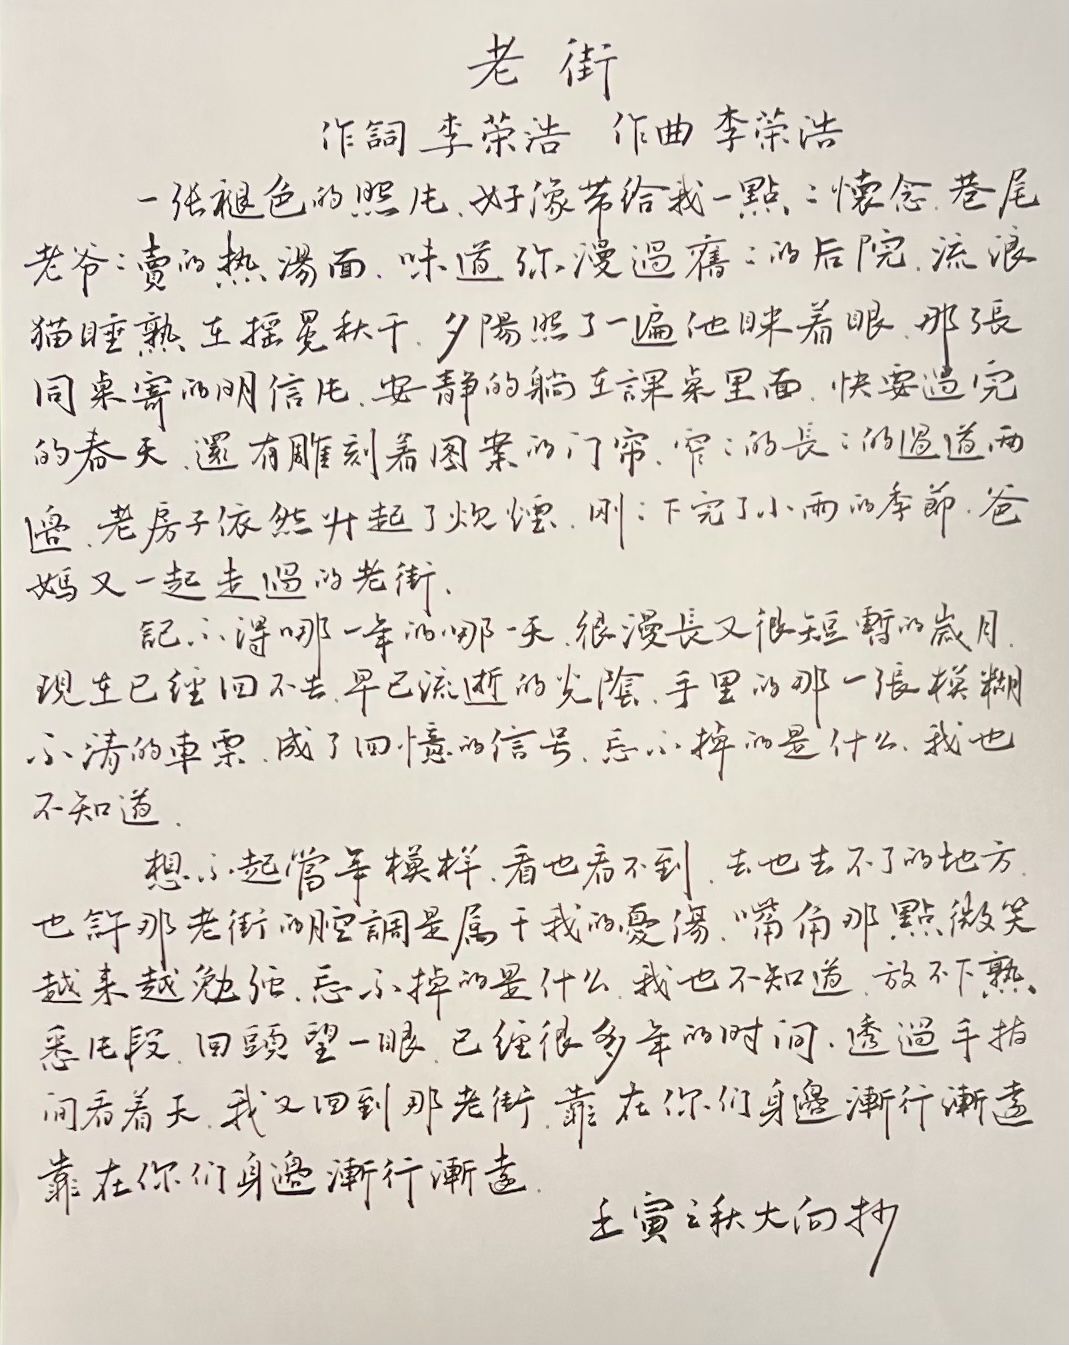 老街
作詞 李荣浩 作曲 李荣浩
一张褪色的照片、好像带给我一點：懷念、巷尾
老爷：賣的热湯面、味道弥漫過舊：的后院、流浪
猫睡熟在摇晃秋千、夕陽照了一遍他眯着眼、那張
同桌寄的明信片、安静的躺在課桌里面、快要過完
的春天、還有雕刻着图案的门帘、窄：的長：的過道两
邊、老房子依然升起了炊煙、刚：下完了小雨的季節、爸
媽又一起走過的老街、
記不得哪一年的哪一天、很漫長又很短暫的歲月、
現在已經回不去、早已流逝的光陰、手里的那一張模糊
不清的車票、成了回憶的信号、忘不掉的是什么、我也
不知道、
想不起當年模样、看也看不到、去也去不了的地方、
也許那老街的腔調是属于我的憂傷、嘴角那點微笑
越来越勉强、忘不掉的是什么、我也不知道、放不下熟
悉片段、回頭望一眼、已經很多年的时间、透過手指
间看着天、我又回到那老街、靠在你们身邊漸行漸遠
靠在你们身邊漸行漸遠、
壬寅之秋大向抄